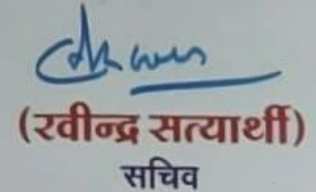 (रवीन्द्र सत्यार्थी)
सचिव